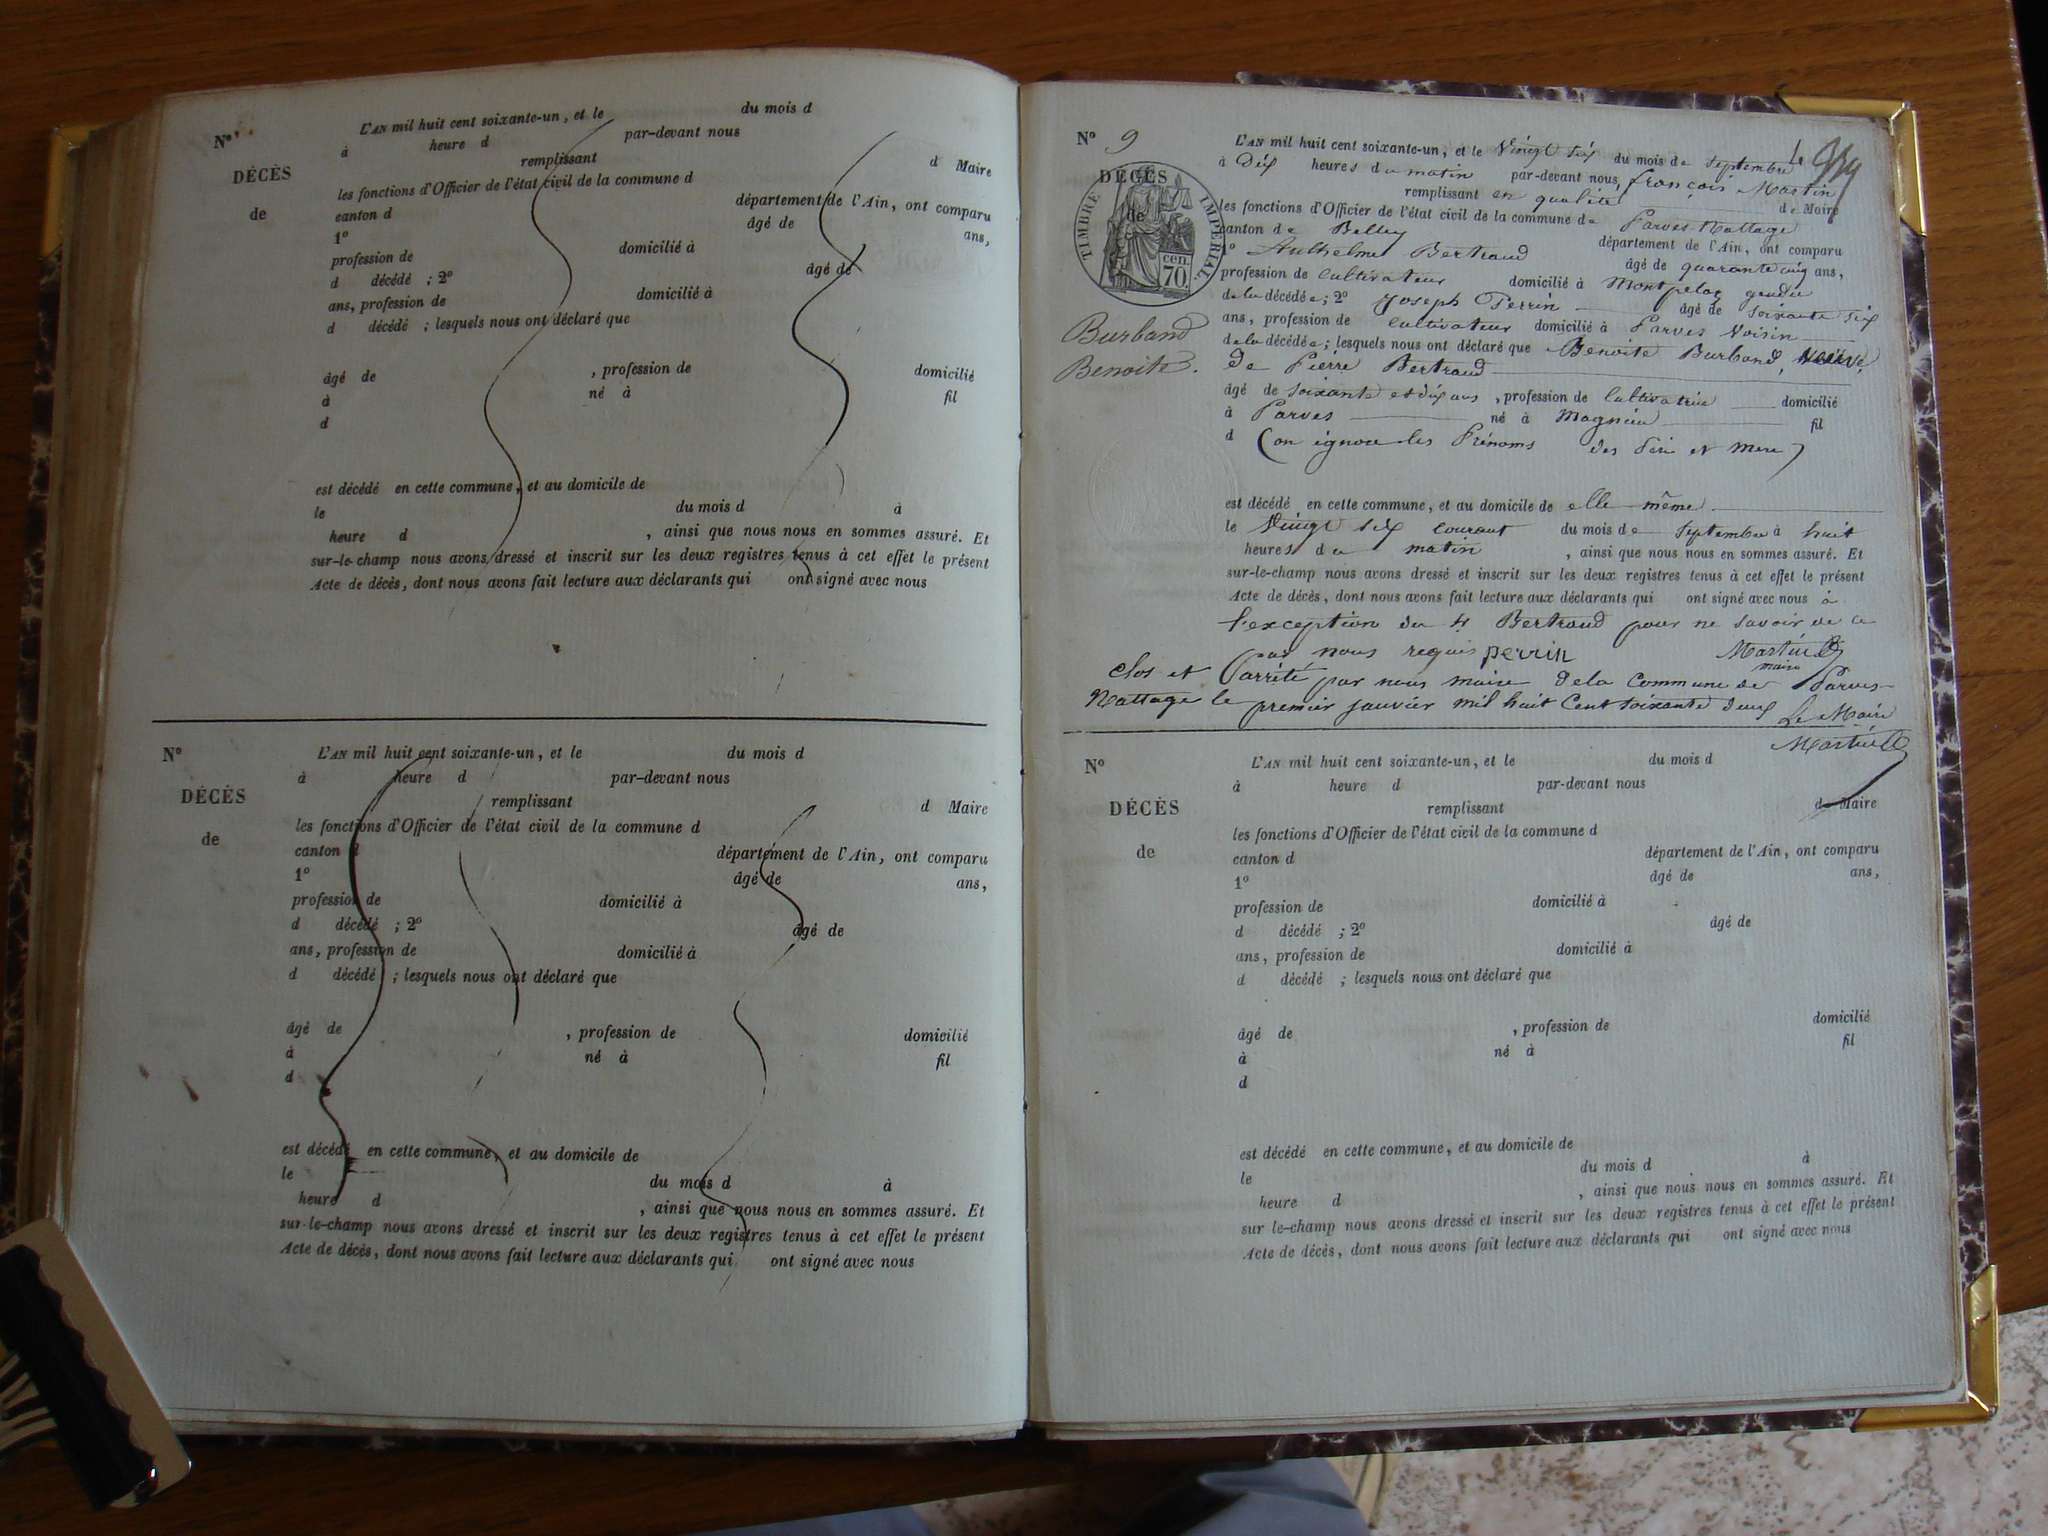 N°
DÉCÈS
de
L'AN mil huit cent soixante-un, et le du mois d
à heure d par-devant nous
remplissant d Maire
les fonctions d'Officier de l'état civil de la commune d
canton d département de l'Ain, ont comparu
1° âgé de ans,
profession de domicilié à
d décédé ; 2° âgé de
ans, profession de domicilié à
d décédé ; lesquels nous ont déclaré que
âgé de , profession de domicilié
à né à fil
d
est décédé en cette commune, et au domicile de
le du mois d à
heure d , ainsi que nous nous en sommes assuré. Et
sur-le-champ nous avons dressé et inscrit sur les deux registres tenus à cet effet le présent
Acte de décès, dont nous avons fait lecture aux déclarants qui ont signé avec nous
N°
DÉCÈS
de
L'AN mil huit cent soixante-un, et le du mois d
à heure d par-devant nous
remplissant d Maire
les fonctions d'Officier de l'état civil de la commune d
canton d département de l'Ain, ont comparu
1° âgé de ans,
profession de domicilié à
d décédé ; 2° âgé de
ans, profession de domicilié à
d décédé ; lesquels nous ont déclaré que
âgé de , profession de domicilié
à né à fil
d
est décédé en cette commune, et au domicile de
le du mois d à
heure d , ainsi que nous nous en sommes assuré. Et
sur-le-champ nous avons dressé et inscrit sur les deux registres tenus à cet effet le présent
Acte de décès, dont nous avons fait lecture aux déclarants qui ont signé avec nous
N° 9
DÉCÈS
de
TIMBRE IMPÉRIAL
cen. 70.
Burband
Benoite.
L'AN mil huit cent soixante-un, et le Vingt six du mois de septembre
à Dix heures du matin par-devant nous, françois Martin
remplissant en qualité de Maire
les fonctions d'Officier de l'état civil de la commune de Parves Nattage
canton de Belley département de l'Ain, ont comparu
1° Anthelme Bertrand âgé de quarante cinq ans,
profession de cultivateur domicilié à Montpelaz gendre
de la décédée ; 2° Joseph Perrin âgé de soixante six
ans, profession de cultivateur domicilié à Parves Voisin
de la décédée ; lesquels nous ont déclaré que Benoite Burband, Veuve
de Pierre Bertrand
âgé de soixante et dix ans , profession de cultivatrice domicilié
à Parves né à Magnieu fil
d (on ignore les Prénoms des Père et mere)
est décédé en cette commune, et au domicile de elle même
le Vingt six courant du mois de septembre à huit
heures du matin , ainsi que nous nous en sommes assuré. Et
sur-le-champ nous avons dressé et inscrit sur les deux registres tenus à cet effet le présent
Acte de décès, dont nous avons fait lecture aux déclarants qui ont signé avec nous à
l'exception du Bertrand pour ne savoir de ce
par nous requis perrin Martin
maire
Clos et arrêté par nous maire de la Commune de Parves
Nattage le premier janvier mil huit Cent soixante deux
Le Maire
Martin
N°
DÉCÈS
de
L'AN mil huit cent soixante-un, et le du mois d
à heure d par-devant nous
remplissant d Maire
les fonctions d'Officier de l'état civil de la commune d
canton d département de l'Ain, ont comparu
1° âgé de ans,
profession de domicilié à
d décédé ; 2° âgé de
ans, profession de domicilié à
d décédé ; lesquels nous ont déclaré que
âgé de , profession de domicilié
à né à fil
d
est décédé en cette commune, et au domicile de
le du mois d à
heure d , ainsi que nous nous en sommes assuré. Et
sur le-champ nous avons dressé et inscrit sur les deux registres tenus à cet effet le présent
Acte de décès, dont nous avons fait lecture aux déclarants qui ont signé avec nous